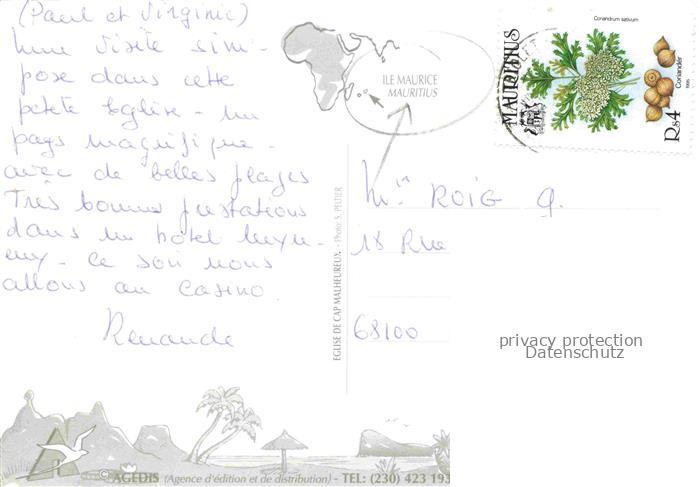 (Paul et Virginie)
Une visite s'im-
pose dans cette
petite Eglise - Un
pays magnifique -
avec de belles plages
Très bonnes prestations
dans un hôtel luxu-
eux - Ce soir nous
allons au casino
Renaude
ILE MAURICE
MAURITIUS
EGLISE DE CAP MALHEUREUX - Photo S. PELTIER
Coriandrum sativum
MAURITIUS
Coriander
1995
Rs4
ROIG G.
18 Rue
68100
privacy protection
Datenschutz
AGEDIS (Agence d'édition et de distribution) - TEL: (230) 423 193